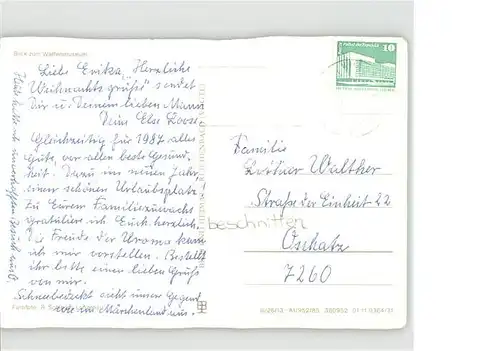 Blick zum Waffenmuseum
Liebe Erika, Herzliche
Weihnachtsgrüße sendet
Dir u. Deinem lieben Mann
Deine Else Loose
Gleichzeitig für 1987 alles
Gute, vor allen beste Gesund-
heit. Dazu im neuen Jahr
einen schönen Urlaubsplatz!
Zu Eurem Familienzuwachs
gratuliere ich Euch herzlich.
Die Freude der Uroma kann
ich mir vorstellen. Bestellt
ihr bitte einen lieben Gruß
von mir.
Schneebedeckt sieht unsere Gegend
wie im Märchenland aus.
10
Familie
Lothar Walther
Straße der Einheit 22
beschnitten
Oschatz
7260